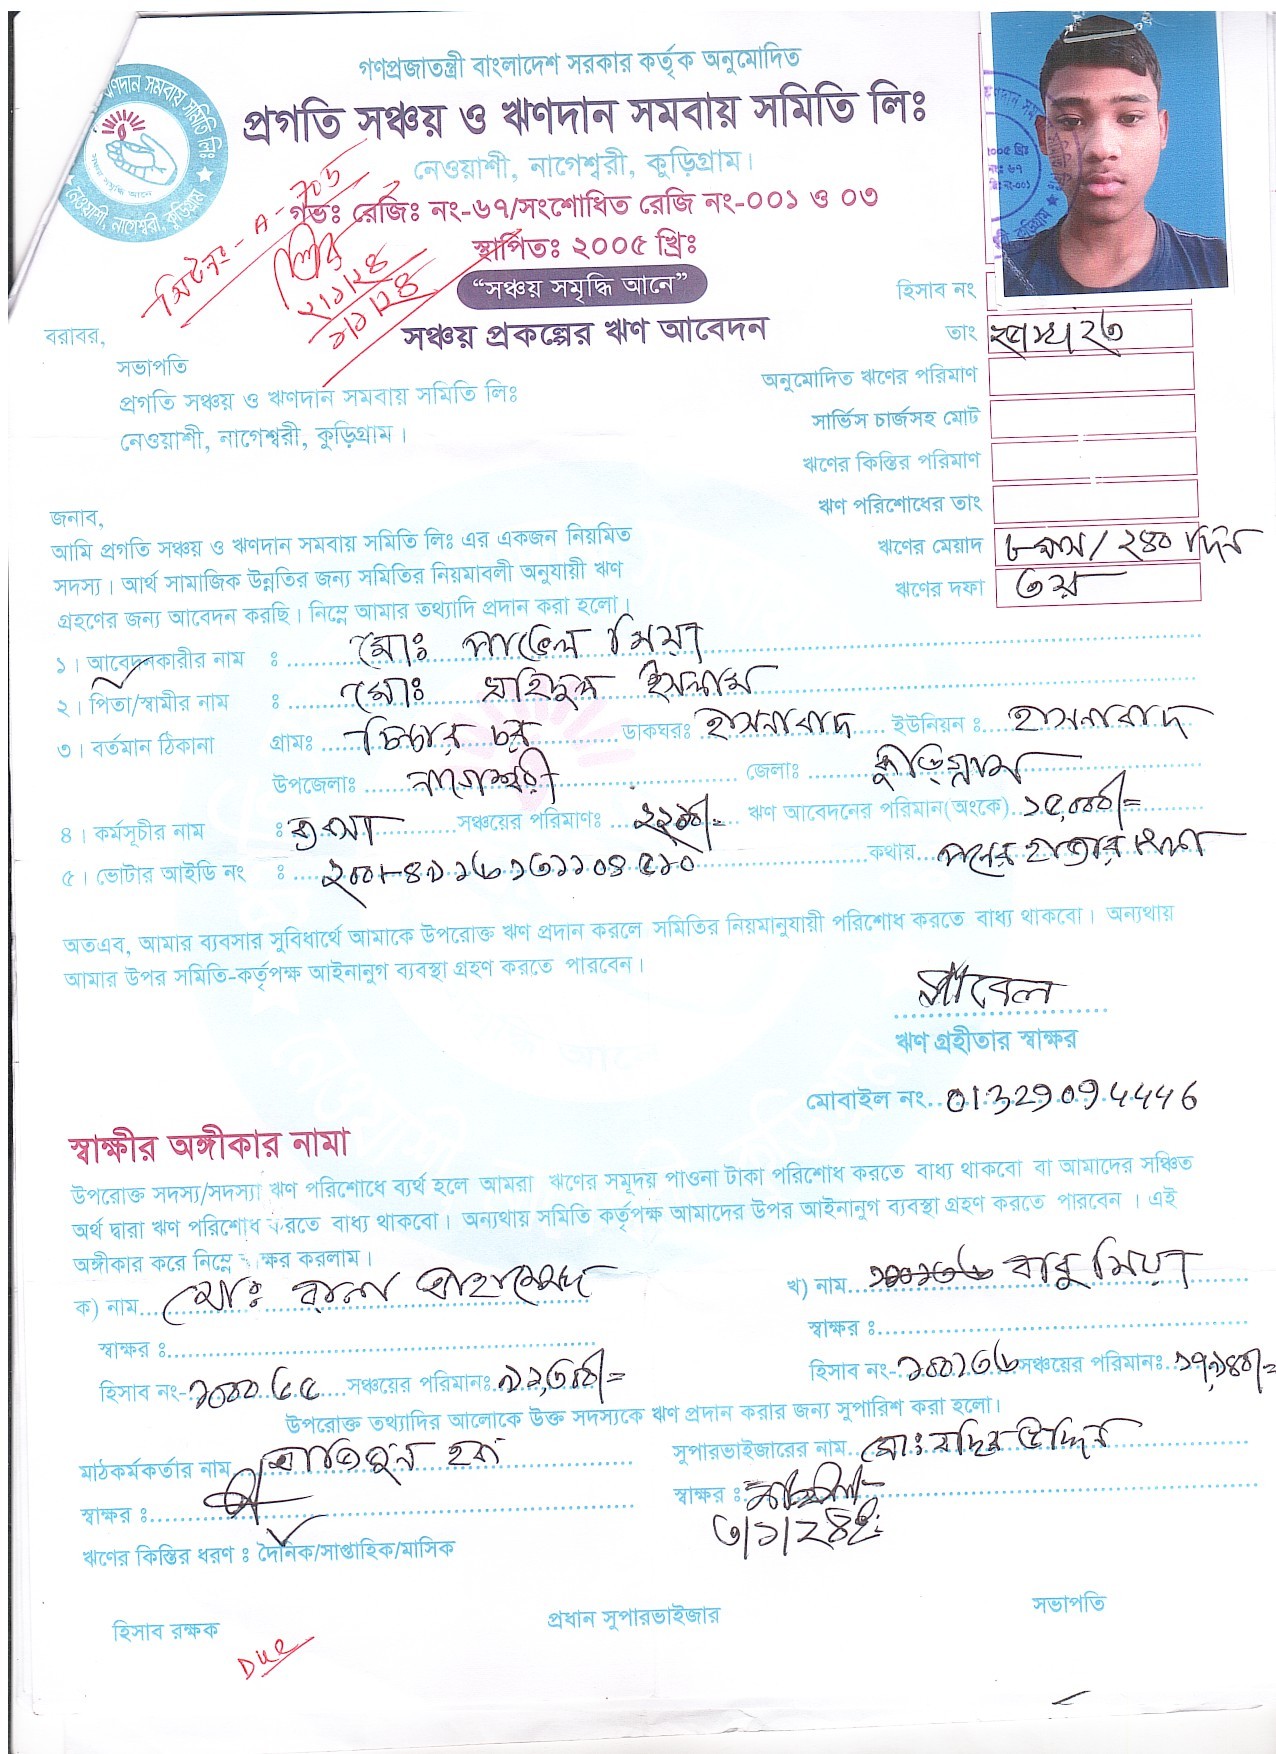 গণপ্রজাতন্ত্রী বাংলাদেশ সরকার কর্তৃক অনুমোদিত
প্রগতি সঞ্চয় ও ঋণদান সমবায় সমিতি লিঃ
নেওয়াশী, নাগেশ্বরী, কুড়িগ্রাম।
গভঃ রেজিঃ নং-৬৭/সংশোধিত রেজি নং-০০১ ও ০৩
স্থাপিতঃ ২০০৫ খ্রিঃ
“সঞ্চয় সমৃদ্ধি আনে”
সঞ্চয় প্রকল্পের ঋণ আবেদন
২/১/২৪
হিসাব নং
তাং
অনুমোদিত ঋণের পরিমাণ
সার্ভিস চার্জসহ মোট
ঋণের কিস্তির পরিমাণ
ঋণ পরিশোধের তাং
ঋণের মেয়াদ ৮ মাস/২৪০ দিন
ঋণের দফা ৩য়
বরাবর,
সভাপতি
প্রগতি সঞ্চয় ও ঋণদান সমবায় সমিতি লিঃ
নেওয়াশী, নাগেশ্বরী, কুড়িগ্রাম।
জনাব,
আমি প্রগতি সঞ্চয় ও ঋণদান সমবায় সমিতি লিঃ এর একজন নিয়মিত
সদস্য। আর্থ সামাজিক উন্নতির জন্য সমিতির নিয়মাবলী অনুযায়ী ঋণ
গ্রহণের জন্য আবেদন করছি। নিম্নে আমার তথ্যাদি প্রদান করা হলো।
১। আবেদনকারীর নাম ঃ মোঃ পাভেল মিয়া
২। পিতা/স্বামীর নাম ঃ মোঃ ইসলাম
৩। বর্তমান ঠিকানা গ্রামঃ চর ডাকঘরঃ হাসনাবাদ ইউনিয়ন ঃ হাসনাবাদ
উপজেলাঃ নাগেশ্বরী জেলাঃ কুড়িগ্রাম
৪। কর্মসূচীর নাম ঃ সঞ্চয়ের পরিমাণঃ ঋণ আবেদনের পরিমান(অংকে) ১৫,০০০/=
৫। ভোটার আইডি নং ঃ কথায় পনের হাজার টাকা
অতএব, আমার ব্যবসার সুবিধার্থে আমাকে উপরোক্ত ঋণ প্রদান করলে সমিতির নিয়মানুযায়ী পরিশোধ করতে বাধ্য থাকবো। অন্যথায়
আমার উপর সমিতি-কর্তৃপক্ষ আইনানুগ ব্যবস্থা গ্রহণ করতে পারবেন।
পাবেল
ঋণ গ্রহীতার স্বাক্ষর
মোবাইল নং. 01329094446
স্বাক্ষীর অঙ্গীকার নামা
উপরোক্ত সদস্য/সদস্যা ঋণ পরিশোধে ব্যর্থ হলে আমরা ঋণের সমূদয় পাওনা টাকা পরিশোধ করতে বাধ্য থাকবো বা আমাদের সঞ্চিত
অর্থ দ্বারা ঋণ পরিশোধ করতে বাধ্য থাকবো। অন্যথায় সমিতি কর্তৃপক্ষ আমাদের উপর আইনানুগ ব্যবস্থা গ্রহণ করতে পারবেন। এই
অঙ্গীকার করে নিম্নে স্বাক্ষর করলাম।
ক) নাম মোঃ রানা খ) নাম বাবু মিয়া
স্বাক্ষর ঃ স্বাক্ষর ঃ
হিসাব নং- সঞ্চয়ের পরিমানঃ হিসাব নং- সঞ্চয়ের পরিমানঃ
উপরোক্ত তথ্যাদির আলোকে উক্ত সদস্যকে ঋণ প্রদান করার জন্য সুপারিশ করা হলো।
মাঠকর্মকর্তার নাম হক সুপারভাইজারের নাম মোঃ উদ্দিন
স্বাক্ষর ঃ স্বাক্ষর ঃ
৩/১/২৪ইং
ঋণের কিস্তির ধরণ ঃ দৈনিক/সাপ্তাহিক/মাসিক
হিসাব রক্ষক প্রধান সুপারভাইজার সভাপতি
Due